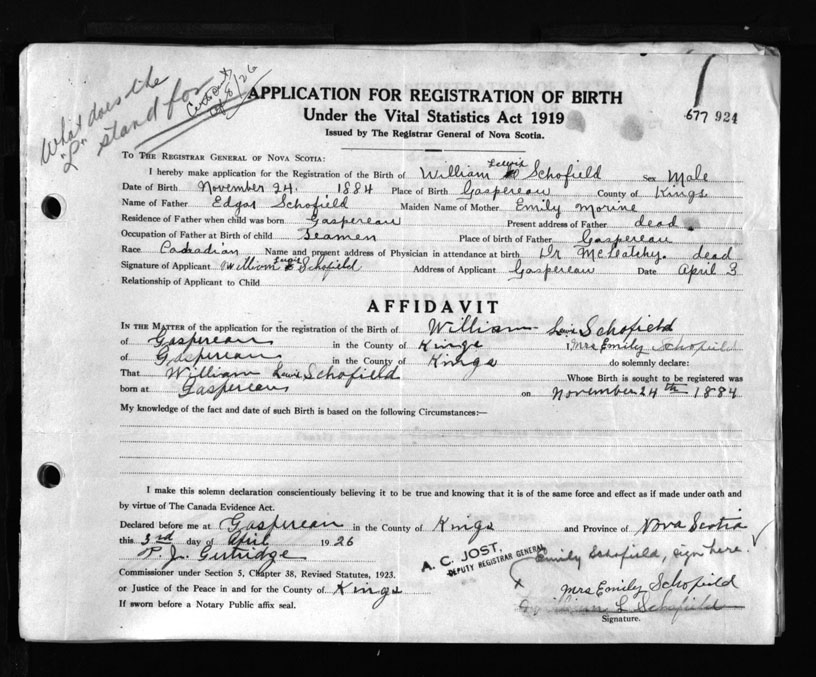 What does the
"L" stand for
APPLICATION FOR REGISTRATION OF BIRTH
Under the Vital Statistics Act 1919
677 924
Issued by The Registrar General of Nova Scotia.
To The Registrar General of Nova Scotia:
I hereby make application for the Registration of the Birth of William Lewis Schofield Sex Male
Date of Birth November 24. 1884 Place of Birth Gaspereau County of Kings
Name of Father Edgar Schofield Maiden Name of Mother Emily Morine
Residence of Father when child was born Gaspereau Present address of Father dead.
Occupation of Father at Birth of child Teamen Place of birth of Father Gaspereau
Race Canadian Name and present address of Physician in attendance at birth Dr McLeatchy. dead
Signature of Applicant William Lewis Schofield Address of Applicant Gaspereau Date April 3
Relationship of Applicant to Child
AFFIDAVIT
In the Matter of the application for the registration of the Birth of William Lewis Schofield
of Gaspereau in the County of Kings I, Mrs Emily Schofield
of Gaspereau in the County of Kings do solemnly declare:
That William Lewis Schofield Whose Birth is sought to be registered was
born at Gaspereau on November 24th 1884
My knowledge of the fact and date of such Birth is based on the following Circumstances:—
I make this solemn declaration conscientiously believing it to be true and knowing that it is of the same force and effect as if made under oath and
by virtue of The Canada Evidence Act.
Declared before me at Gaspereau in the County of Kings and Province of Nova Scotia
this 3rd day of April 1926
P. J. Gertridge
A. C. JOST,
DEPUTY REGISTRAR GENERAL
Emily Schofield, sign here.
Commissioner under Section 5, Chapter 38, Revised Statutes, 1923.
x Mrs Emily Schofield
or Justice of the Peace in and for the County of Kings
William L Schofield
If sworn before a Notary Public affix seal.
Signature.